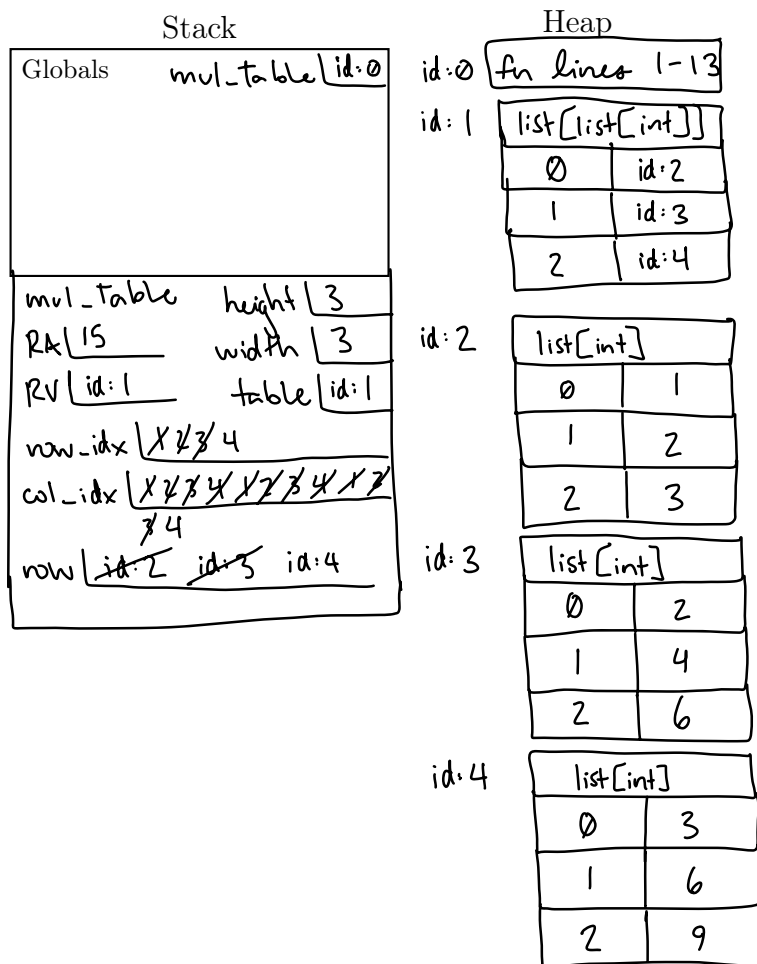 Stack
Globals mul_table id:0
mul_table height 3
RA 15 width 3
RV id:1 table id:1
row_idx 1 2 3 4
col_idx 1 2 3 4 1 2 3 4 1 2
3 4
row id:2 id:3 id:4
Heap
id:0 fn lines 1-13
id:1 list[list[int]]
0 id:2
1 id:3
2 id:4
id:2 list[int]
0 1
1 2
2 3
id:3 list[int]
0 2
1 4
2 6
id:4 list[int]
0 3
1 6
2 9